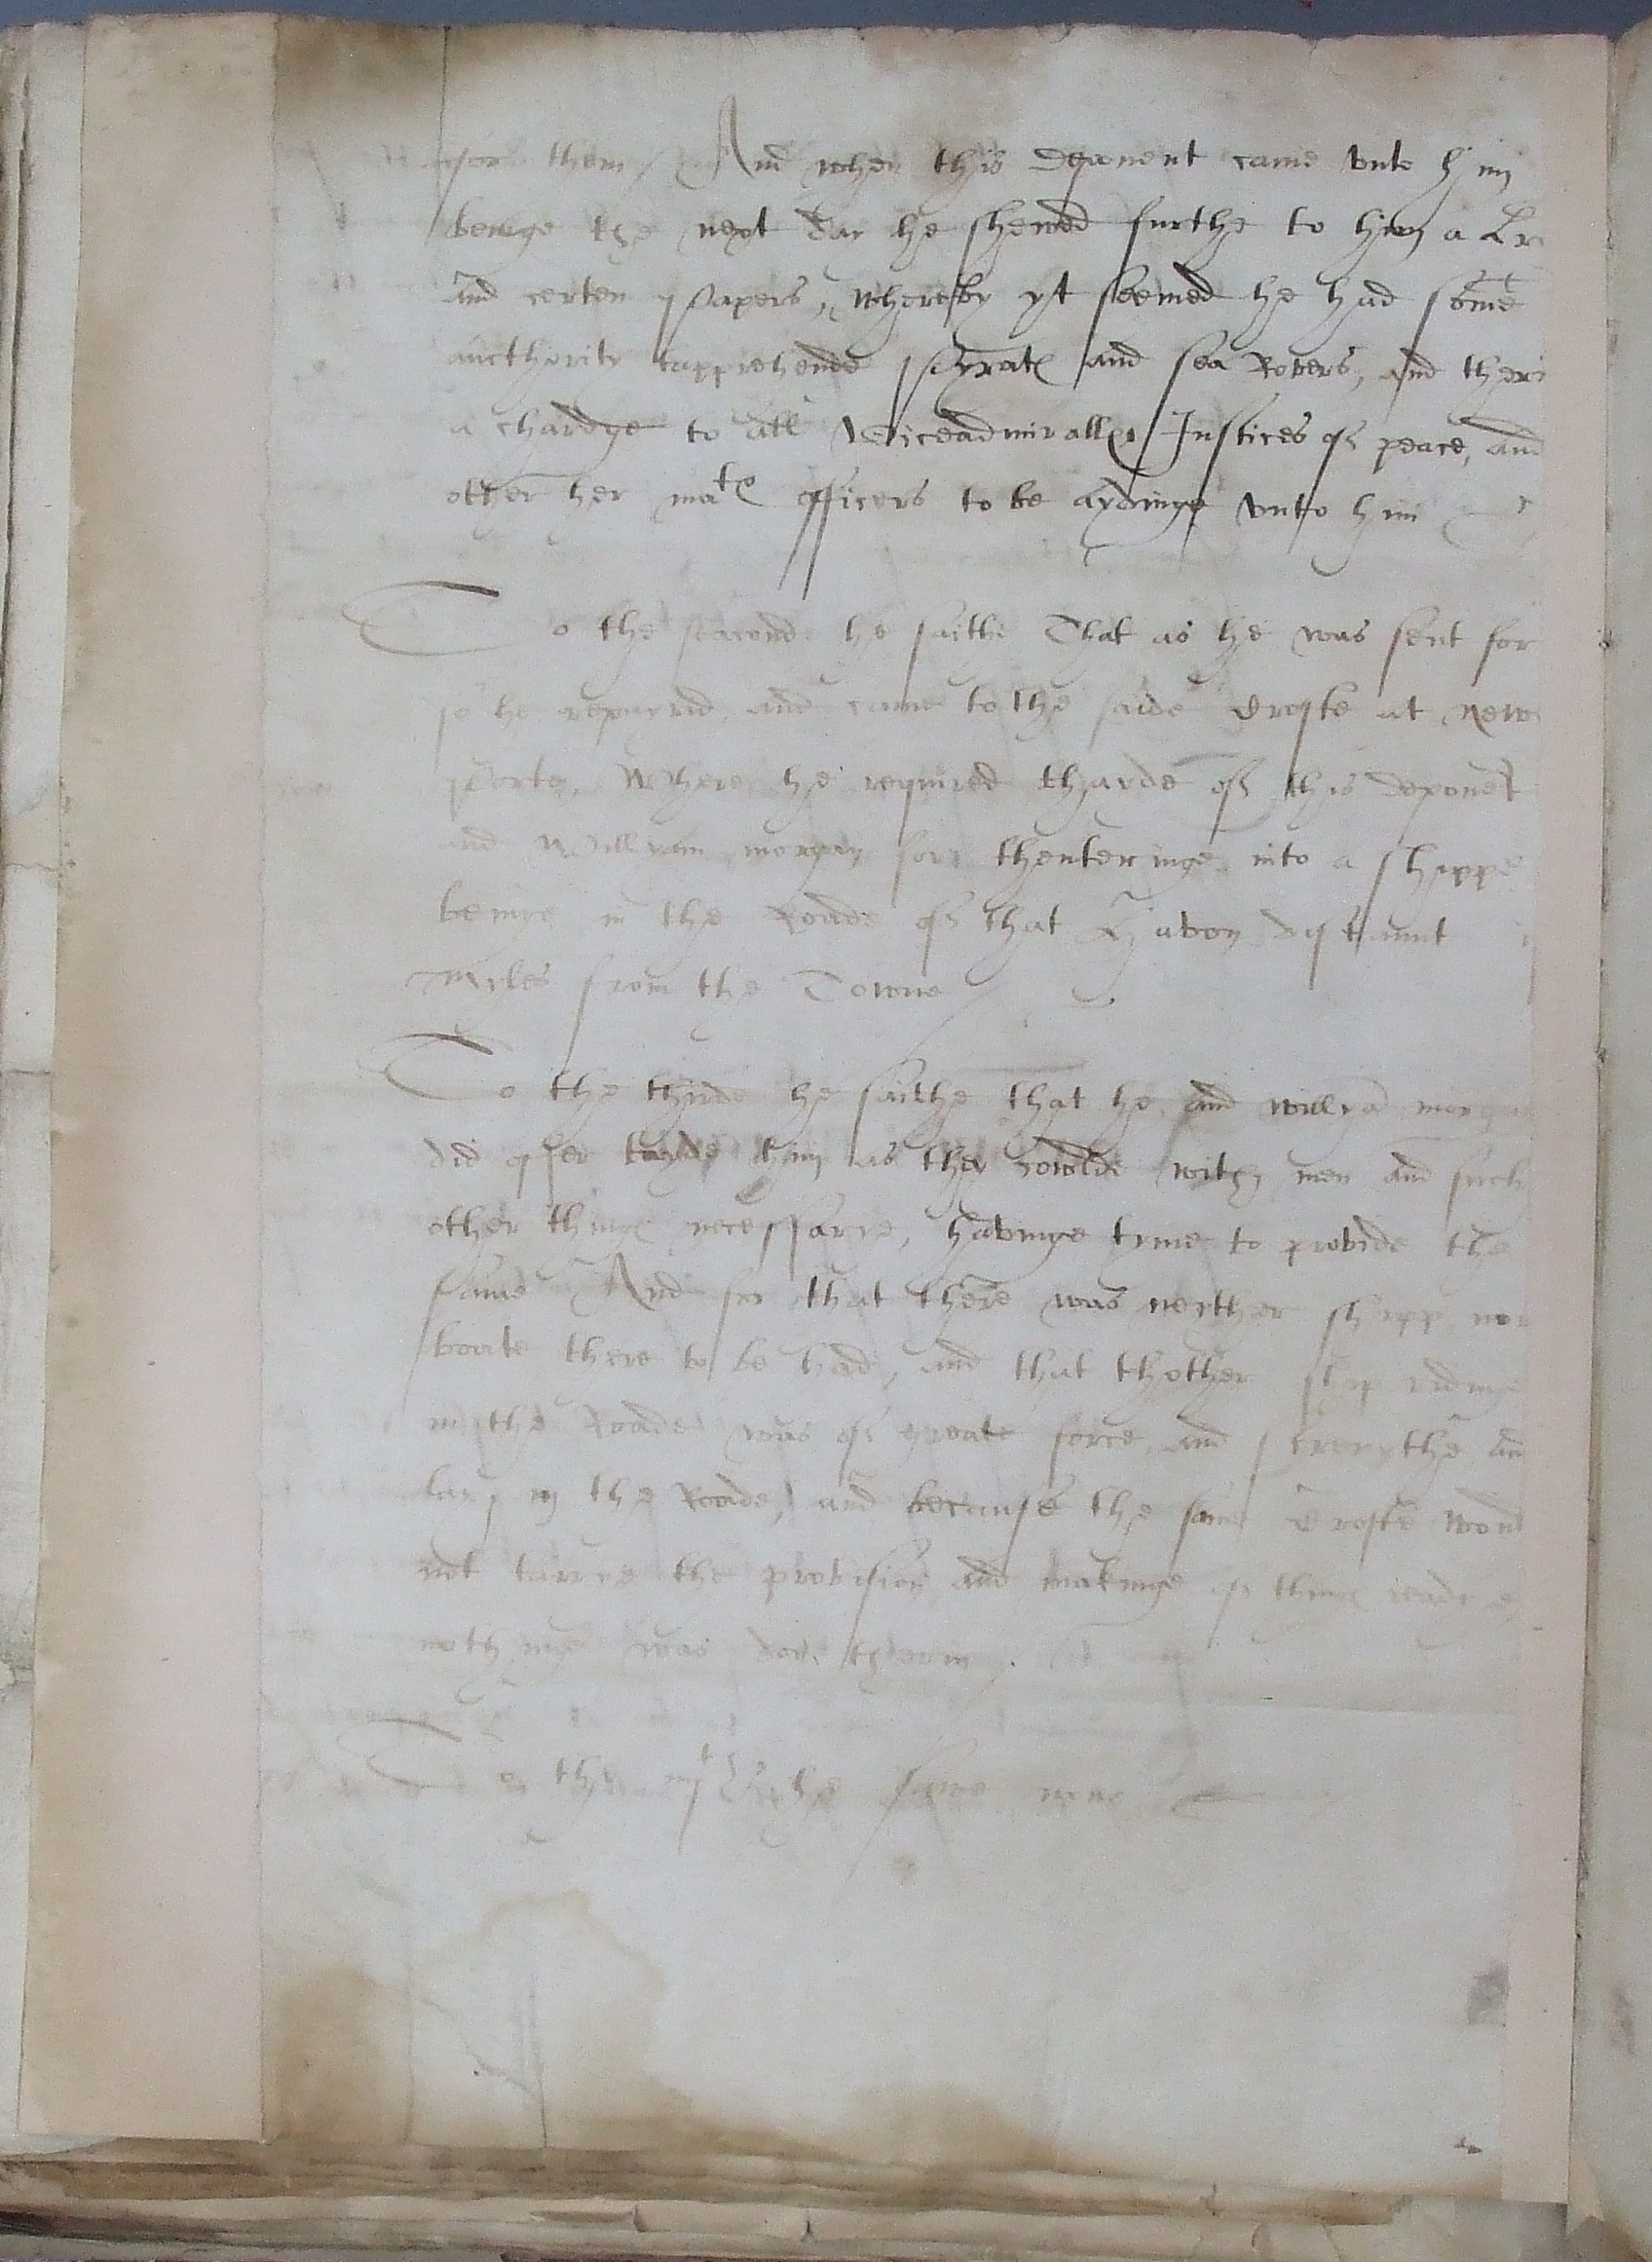 for them / And when this deponent came vnto him
beinge the next day he shewed furthe to him a Lre
and certen papers, whereby yt seemed he had some
aucthority tapprehende pyrat and sea Robers, and therin
a chardge to all Viceadmiralles Justices of peace, and
other her mates officers to be aydinge vnto him
To the seconde he saithe That as he was sent for
so he repayrid and came to the saide Croste at New
porte, where he required thayde of this deponent
and Willyam morgan for thenteringe into a shippe
beinge in the Roade of that Havon distaunt
myles from the Towne
To the thirde he saithe that he and willya morgan
did offer tayde him as they cowlde with men and such
other thing necessarie, havinge tyme to provide the
same And for that there was neither shipp nor
boate there to be had, and that thother ship ridinge
in the Roade was of greate force, and strengthe and
lay in the Roade, and because the same Croste would
not tarrye the provision and makinge of thing readye
nothinge was done therin.
To the iiijth he saithe none